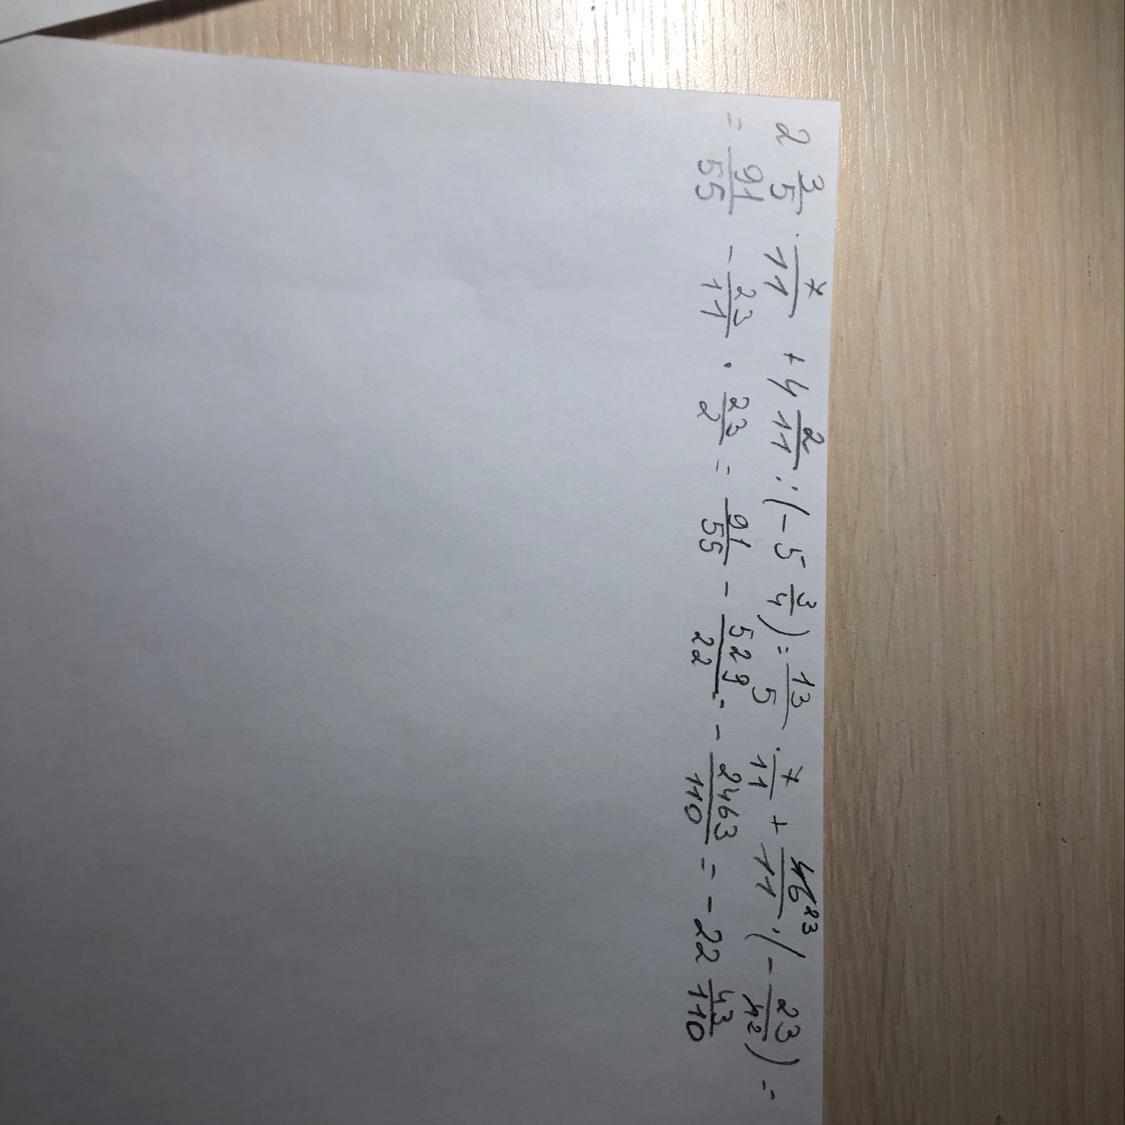 2 3/5 · 7/11 + 4 2/11 : (- 5 3/4) = 13/5 · 7/11 + 46 23/11 · (- 23/4 2) =
= 91/55 - 23/11 · 23/2 = 91/55 - 529/22 = - 2463/110 = - 22 43/110